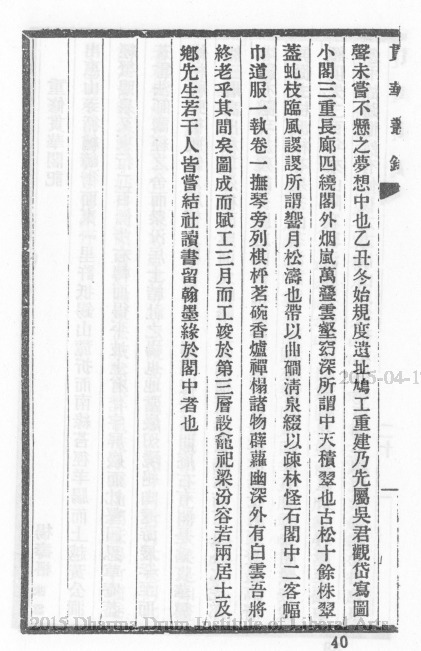 貫華叢錄
聲未嘗不懸之夢想中也乙丑冬始規度遺址鳩工重建乃先屬吳君觀岱寫圖
小閣三重長廊四繞閣外烟嵐萬疊雲壑窈深所謂中天積翠也古松十餘株翠
蓋虬枝臨風謖謖所謂響月松濤也帶以曲磵淸泉綴以疎林怪石閣中二客幅
巾道服一執卷一撫琴旁列棋枰茗碗香爐禪榻諸物薜蘿幽深外有白雲吾將
終老乎其間矣圖成而賦工三月而工竣於第三層設龕祀梁汾容若兩居士及
鄉先生若干人皆嘗結社讀書留翰墨緣於閣中者也
2015-04-1
2015 Dharma Drum Institute of Liberal Arts
40